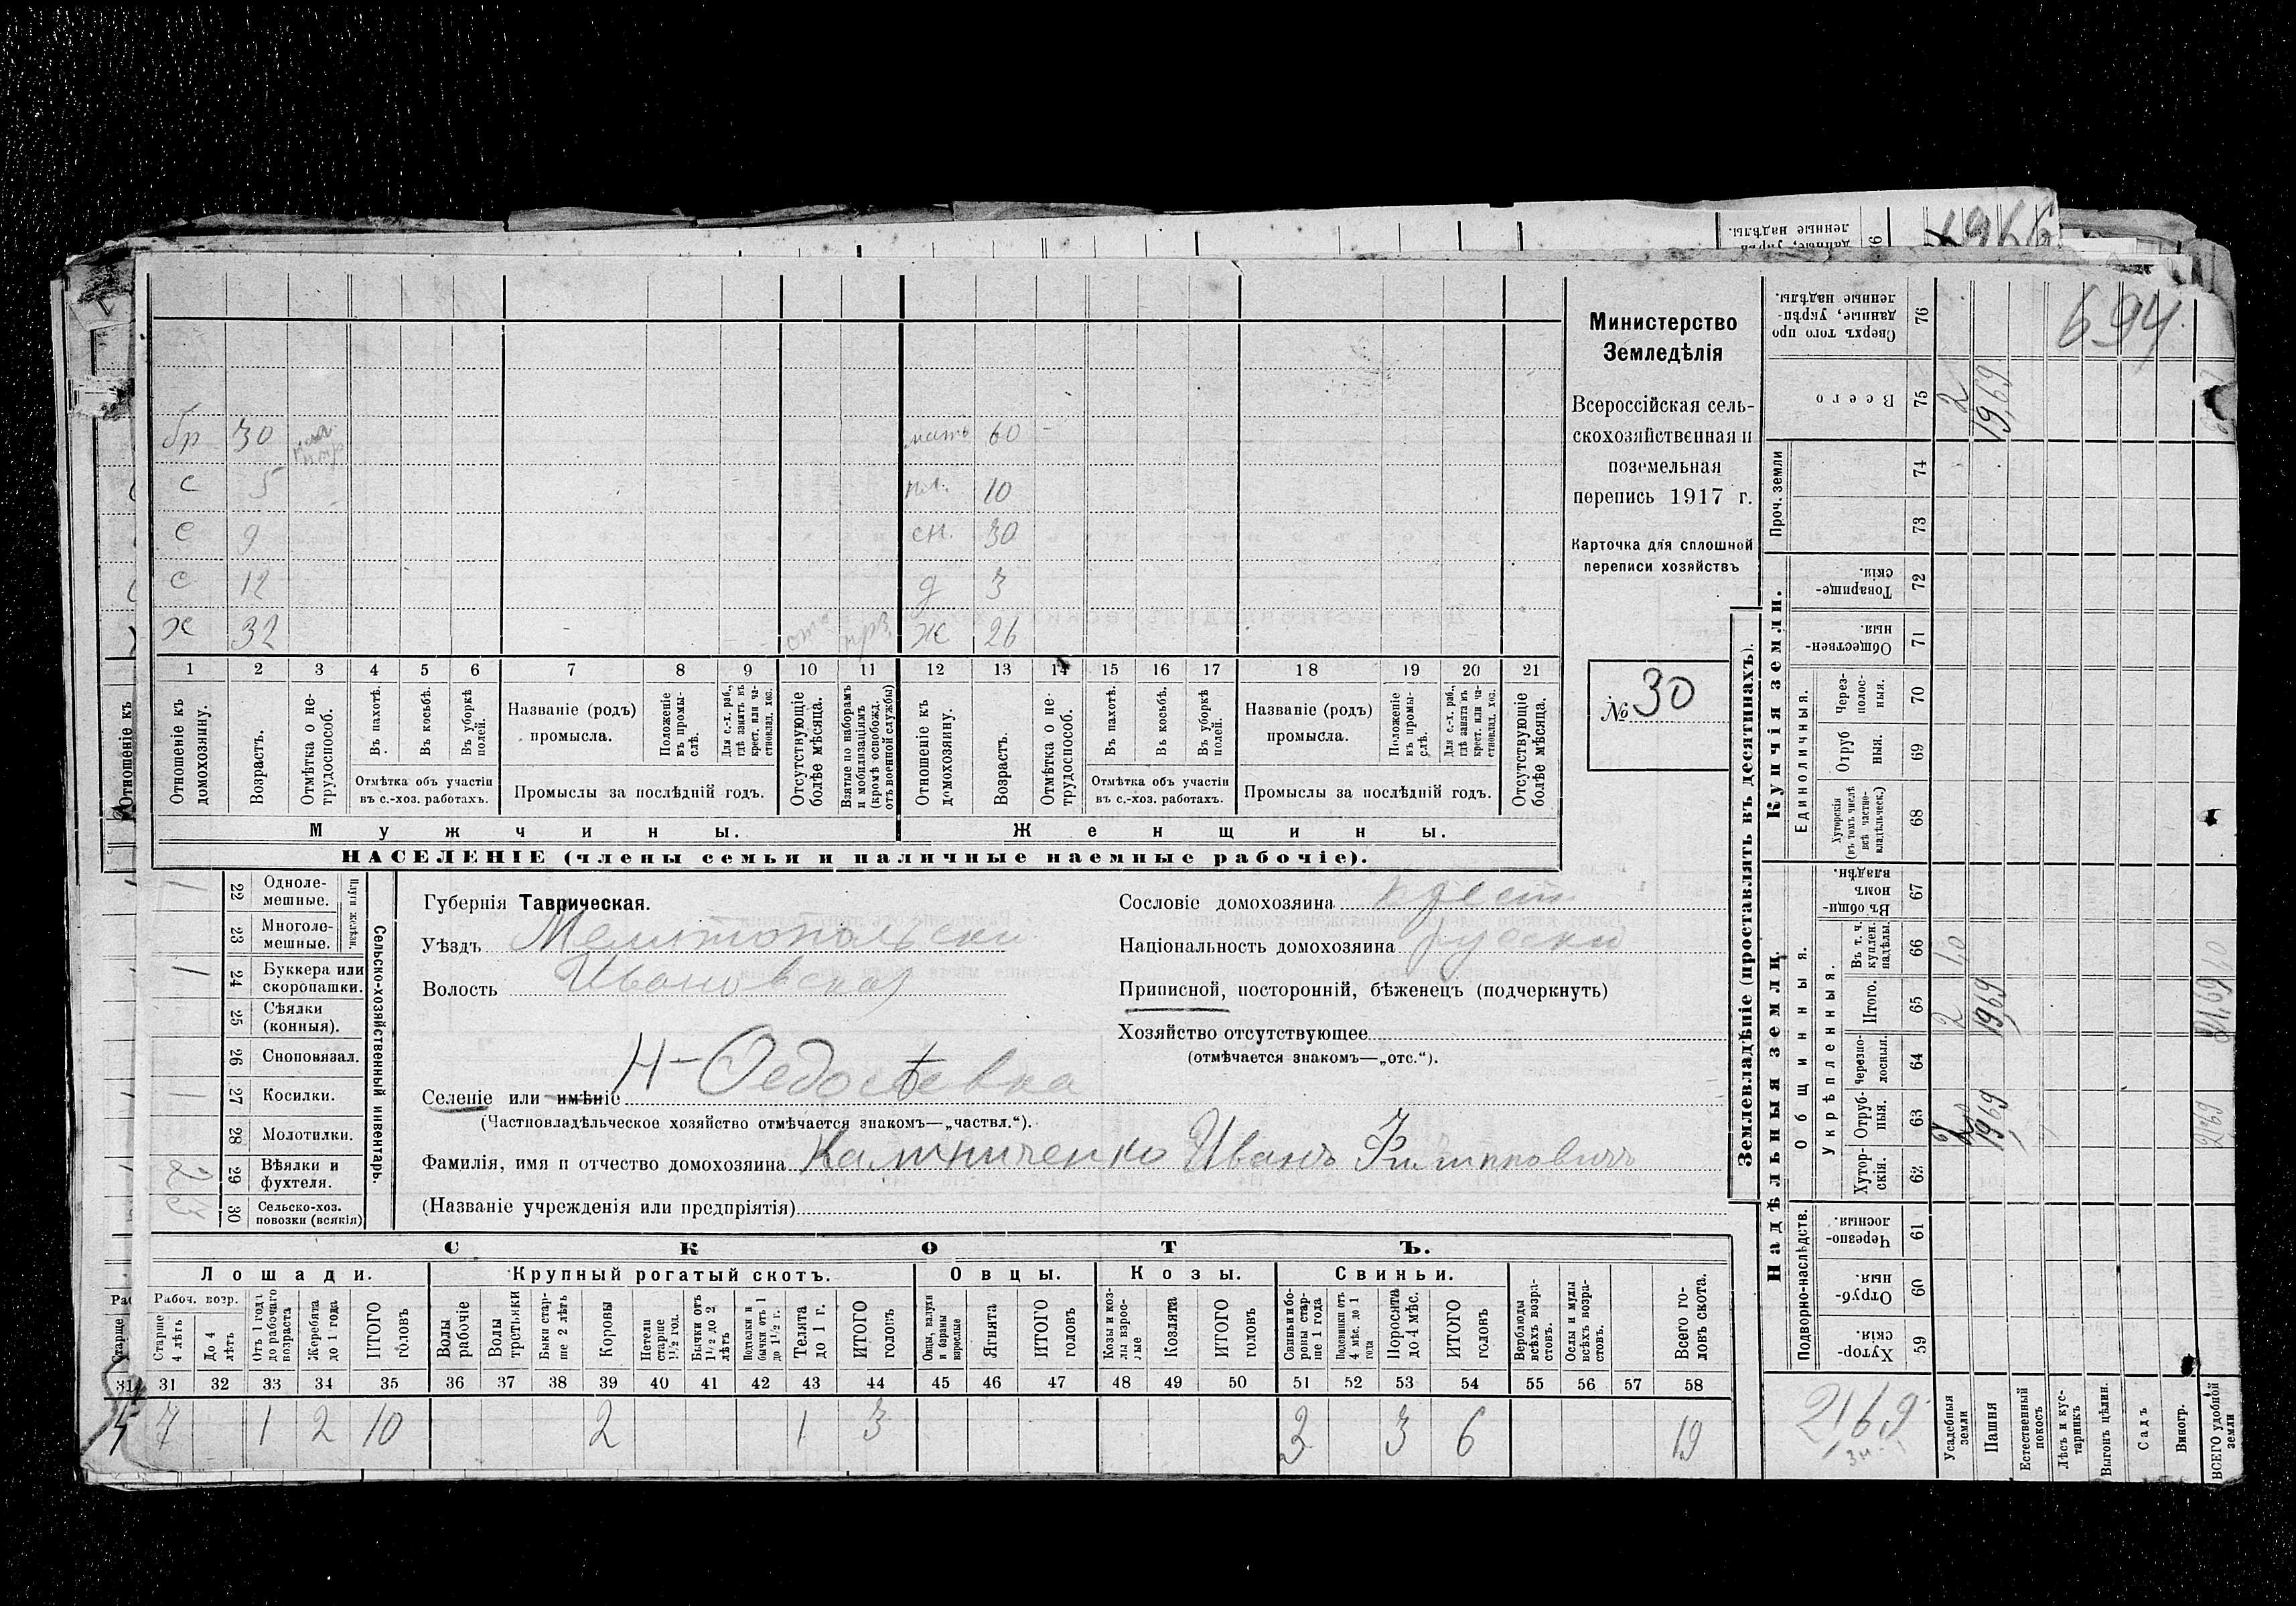 694
бр 30 мать 60
с 5 пл. 10
с 9 сн. 30
с 12 д 3
х 32 ж 26
1 2 3 4 5 6 7 8 9 10 11 12 13 14 15 16 17 18 19 20 21
Отношеніе къ домохозяину.
Возрастъ.
Отмѣтка о не-трудоспособ.
Въ пахотѣ.
Въ косьбѣ.
Въ уборкѣ полей.
Отмѣтка объ участіи въ с.-хоз. работахъ.
Названіе (родъ) промысла.
Положеніе въ промы-слѣ.
Для с.-х. раб., гдѣ занятъ въ крест. или ча-стновлад. хоз.
Промыслы за послѣдній годъ.
Отсутствующіе болѣе мѣсяца.
Взятые по наборамъ и мобилизаціямъ (кромѣ освобожд. отъ военной службы)
Отношеніе къ домохозяину.
Возрастъ.
Отмѣтка о не-трудоспособ.
Въ пахотѣ.
Въ косьбѣ.
Въ уборкѣ полей.
Отмѣтка объ участіи въ с.-хоз. работахъ.
Названіе (родъ) промысла.
Положеніе въ промы-слѣ.
Для с.-х. раб., гдѣ занята въ крест. или ча-стновлад. хоз.
Промыслы за послѣдній годъ.
Отсутствующіе болѣе мѣсяца.
Мужчины. Женщины.
НАСЕЛЕНІЕ (члены семьи и наличные наемные рабочіе).
Министерство
Земледѣлія
Всероссійская сель-
скохозяйственная и
поземельная
перепись 1917 г.
Карточка для сплошной
переписи хозяйствъ
№ 30
Сельско-хозяйственный инвентарь.
Плуги желѣзн.
22 Одноле-мешные. 1
23 Многоле-мешные.
24 Буккера или скоропашки. 1
25 Сѣялки (конныя).
26 Сноповязал.
27 Косилки. 1
28 Молотилки.
29 Вѣялки и фухтеля.
30 Сельско-хоз. повозки (всякія)
Губернія Таврическая.
Уѣздъ Мелитопольски
Волость Ивановская
Селеніе или имѣніе Н-Федосѣевка
(Частновладѣльческое хозяйство отмѣчается знакомъ—„частвл.“).
Фамилія, имя и отчество домохозяина Калиниченко Иванъ Филипповичъ
(Названіе учрежденія или предпріятія)
Сословіе домохозяина крест
Національность домохозяина русски
Приписной, посторонній, бѣженецъ (подчеркнуть)
Хозяйство отсутствующее
(отмѣчается знакомъ—„отс.“).
СКОТЪ.
Лошади. Крупный рогатый скотъ. Овцы. Козы. Свиньи.
Рабоч. возр.
Старше 4 лѣтъ
До 4 лѣтъ
Отъ 1 года до рабочаго возраста
Жеребята до 1 года
ИТОГО головъ
Волы рабочіе
Волы третьяки
Быки стар-ше 2 лѣтъ
Коровы
Нетели старше 1½ год.
Бычки отъ 1½ до 2 лѣтъ
Подтелки и бычки отъ 1 до 1½ г.
Телята до 1 г.
ИТОГО головъ
Овцы, валухи и бараны взрослые
Ягнята
ИТОГО головъ
Козы и коз-лы взрос-лые
Козлята
ИТОГО головъ
Свиньи и бо-ровы стар-ше 1 года
Подсвинки отъ 4 мѣс. до 1 года
Поросята до 4 мѣс.
ИТОГО головъ
Верблюды всѣхъ возра-стовъ.
Ослы и мулы всѣхъ возра-стовъ.
Всего го-ловъ скота.
31 32 33 34 35 36 37 38 39 40 41 42 43 44 45 46 47 48 49 50 51 52 53 54 55 56 57 58
7 1 2 10 2 1 3 3 3 6 19
Землевладѣніе (проставлять въ десятинахъ).
Надѣльныя земли. Купчія земли. Проч. земли
Подворно-наслѣдств.
Общинныя.
Укрѣпленныя.
Единоличныя.
59 Хутор-скія.
60 Отруб-ныя.
61 Черезпо-лосныя.
62 Хутор-скія.
63 Отруб-ныя.
64 Черезпо-лосныя.
65 Итого.
66 Въ т. ч. куплен. надѣлы.
67 Въ общин-номъ владѣн.
68 Хуторскія (въ томъ числѣ всѣ частно-владѣльческ.)
69 Отруб-ныя.
70 Через-полос-ныя.
71 Обществен-ныя.
72 Товарище-скія.
73
74
75 Всего
76 Сверхъ того про-данные, укрѣп-ленные надѣлы.
Усадебныя земли 2 2
Пашня 1969 1969 19,69
Естественный покосъ
Лѣсъ и кус-тарникъ
Выгонъ цѣлин.
Садъ
Виногр.
ВСЕГО удобной земли 2169 21,69
2169